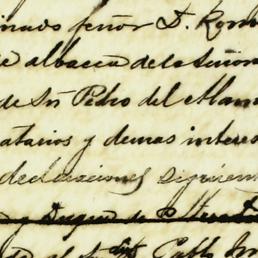 inado señor D. Rom
e albacea dela Señor
de Sn Pedro del Alam
atarios y demas intere
declaraciones siguien
y Duque de